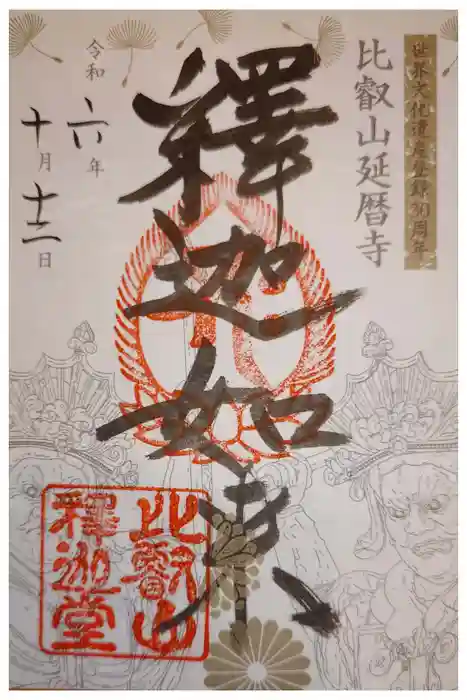 世界文化遺産登録30周年
比叡山延暦寺
釋迦如来
令和六年
十月十二日
比叡山
釋迦堂